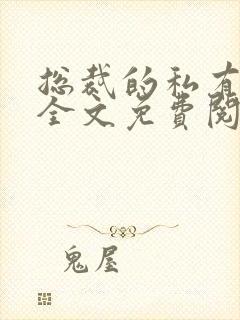 总裁的私有
全文免費閱
鬼屋